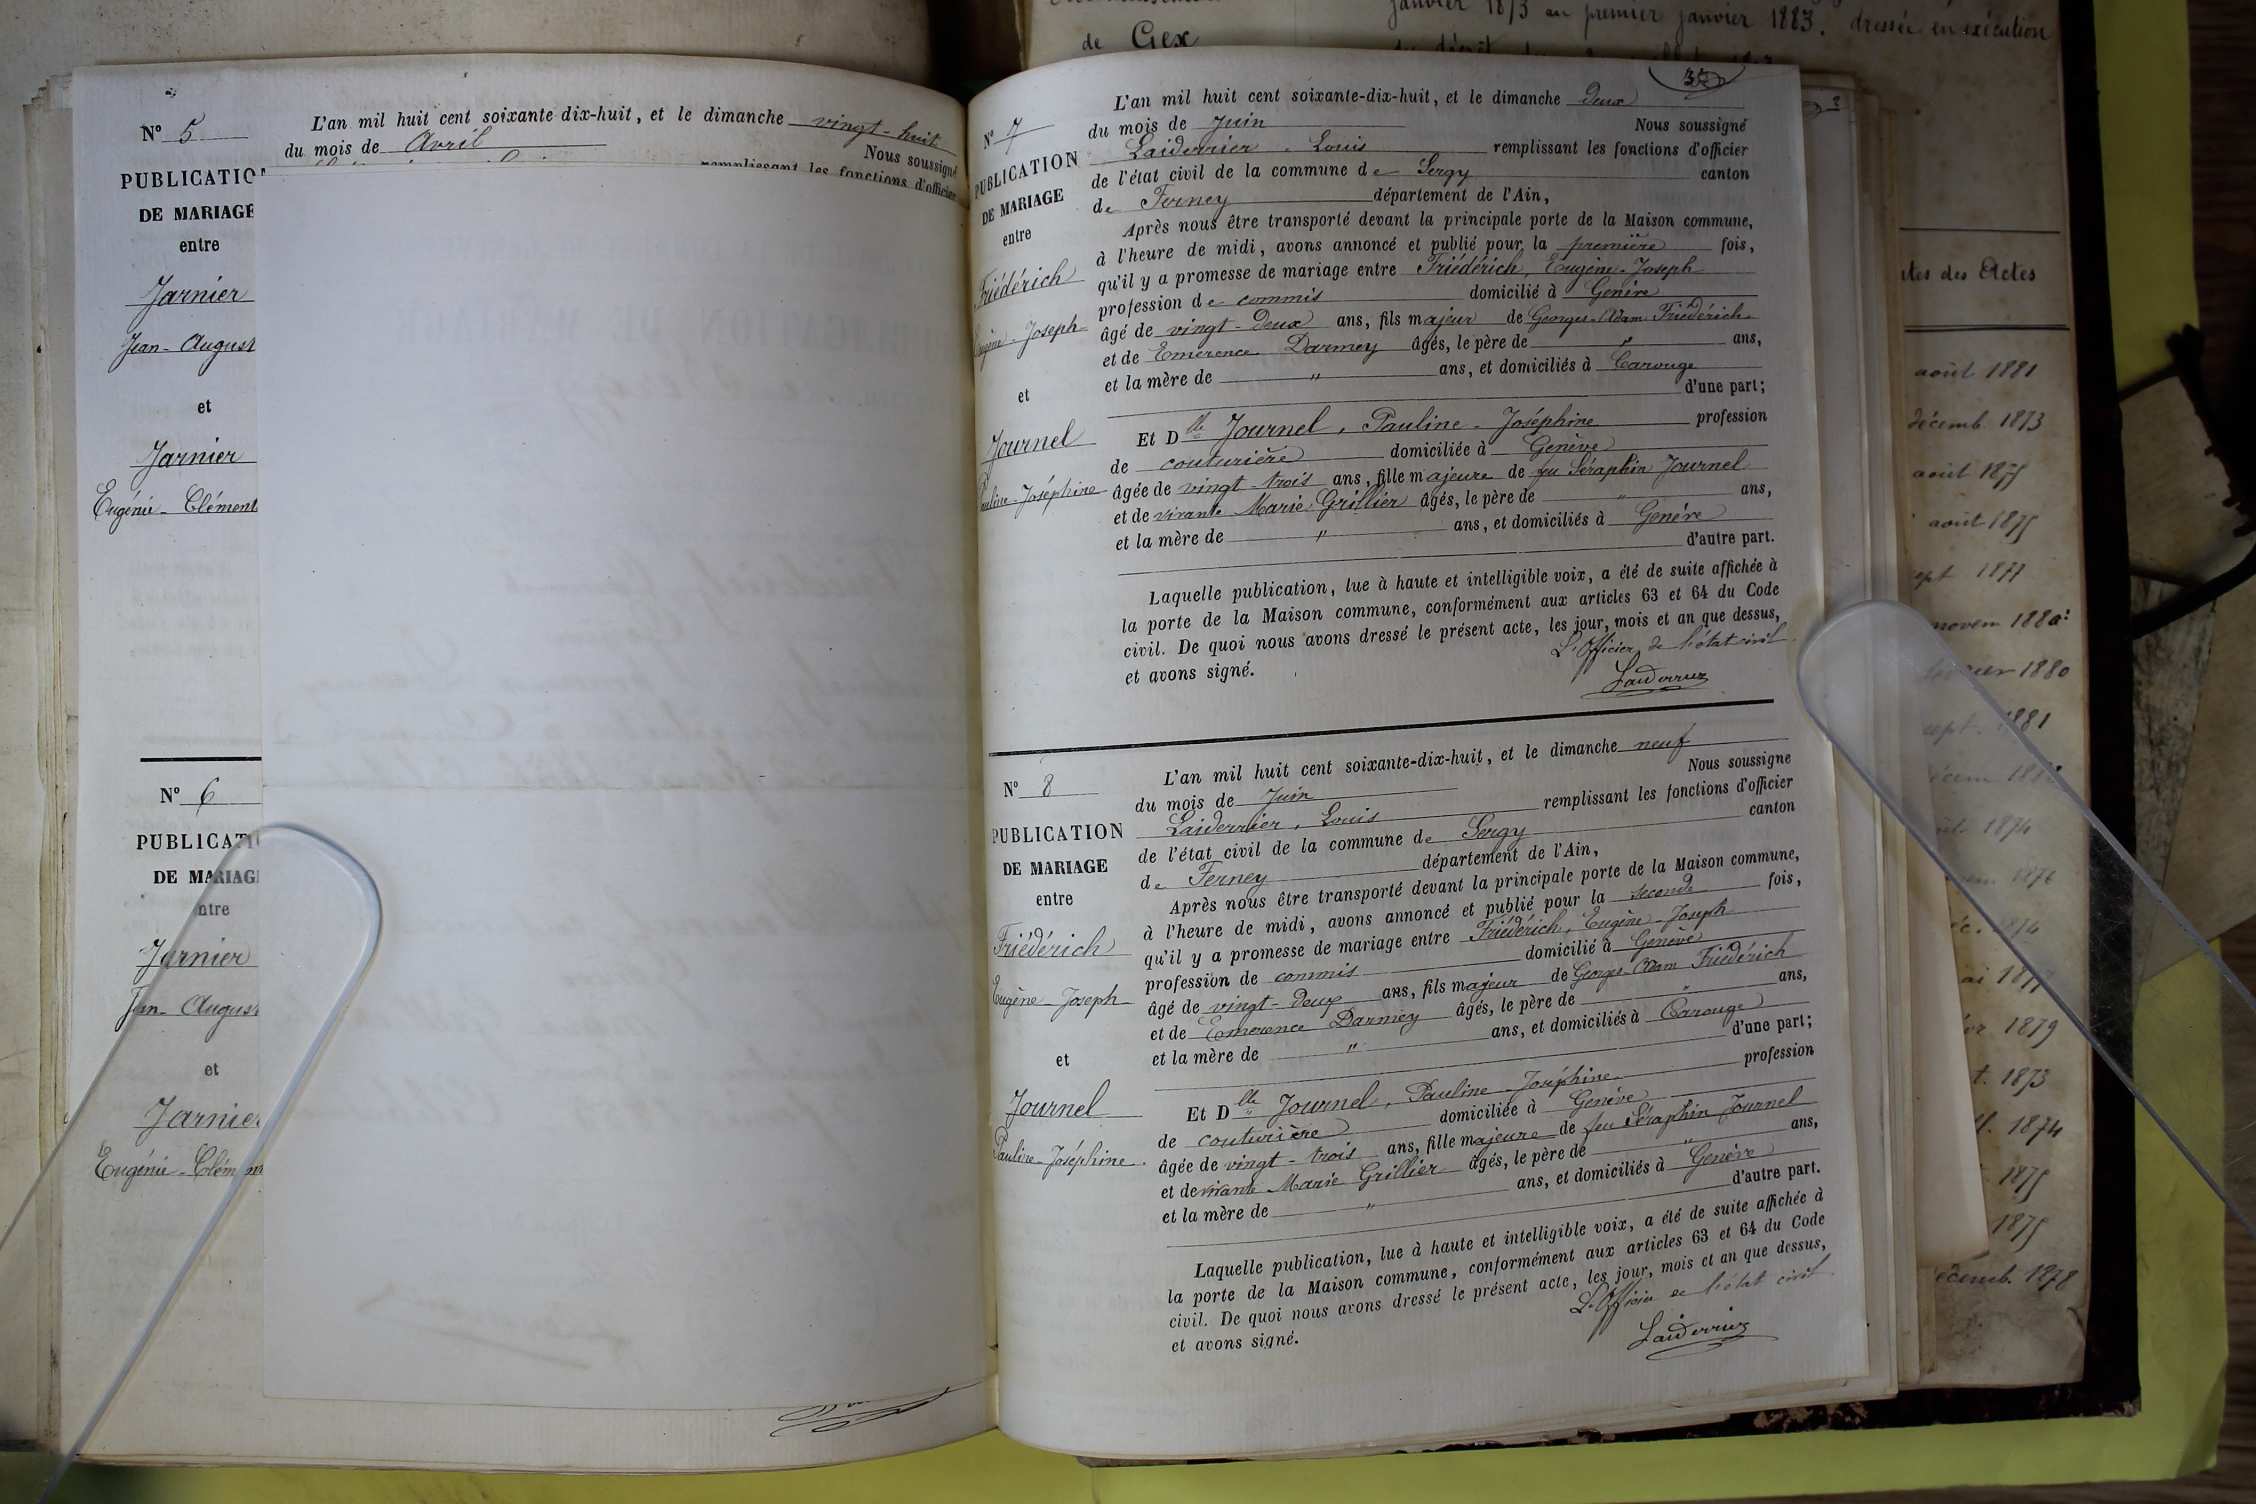 de Gex
janvier 1873 au premier janvier 1883. dressée en exécution
N° 5
PUBLICATIO
DE MARIAGE
entre
Jarnier
Jean-August
et
Jarnier
Eugénie-Clément
L'an mil huit cent soixante-dix-huit, et le dimanche vingt-huit
du mois de Avril
Nous soussigné
remplissant les fonctions d'officier
N° 6
PUBLICATI
DE MARIAG
ntre
Jarnier
Jean-August
et
Jarnier
Eugénie-Clément
N° 7
PUBLICATION
DE MARIAGE
entre
Friédérich
Eugène-Joseph
et
Journel
Pauline-Joséphine
L'an mil huit cent soixante-dix-huit, et le dimanche deux
du mois de Juin Nous soussigné
Laiderrier, Louis remplissant les fonctions d'officier
de l'état civil de la commune de Sergy canton
de Ferney département de l'Ain,
Après nous être transporté devant la principale porte de la Maison commune,
à l'heure de midi, avons annoncé et publié pour la première fois,
qu'il y a promesse de mariage entre Friédérich, Eugène-Joseph
profession de commis domicilié à Genève
âgé de vingt-deux ans, fils majeur de Georges-Adam Friédérich
et de Emerence Darmey âgés, le père de " ans,
et la mère de " ans, et domiciliés à Carouge
d'une part;
Et Dlle Journel, Pauline-Joséphine profession
de couturière domiciliée à Genève
âgée de vingt-trois ans, fille majeure de feu Séraphin Journel
et de vivante Marie Grillier âgés, le père de " ans,
et la mère de " ans, et domiciliés à Genève
d'autre part.
Laquelle publication, lue à haute et intelligible voix, a été de suite affichée à
la porte de la Maison commune, conformément aux articles 63 et 64 du Code
civil. De quoi nous avons dressé le présent acte, les jour, mois et an que dessus,
et avons signé.
L'Officier de l'état civil
Laiderrier
N° 8
PUBLICATION
DE MARIAGE
entre
Friédérich
Eugène-Joseph
et
Journel
Pauline-Joséphine.
L'an mil huit cent soixante-dix-huit, et le dimanche neuf
du mois de Juin Nous soussigné
Laiderrier, Louis remplissant les fonctions d'officier
de l'état civil de la commune de Sergy canton
de Ferney département de l'Ain,
Après nous être transporté devant la principale porte de la Maison commune,
à l'heure de midi, avons annoncé et publié pour la seconde fois,
qu'il y a promesse de mariage entre Friédérich, Eugène-Joseph
profession de commis domicilié à Genève
âgé de vingt-deux ans, fils majeur de Georges-Adam Friédérich
et de Emerence Darmey âgés, le père de " ans,
et la mère de " ans, et domiciliés à Carouge
d'une part;
Et Dlle Journel, Pauline-Joséphine profession
de couturière domiciliée à Genève
âgée de vingt-trois ans, fille majeure de feu Séraphin Journel
et de vivante Marie Grillier âgés, le père de " ans,
et la mère de " ans, et domiciliés à Genève
d'autre part.
Laquelle publication, lue à haute et intelligible voix, a été de suite affichée à
la porte de la Maison commune, conformément aux articles 63 et 64 du Code
civil. De quoi nous avons dressé le présent acte, les jour, mois et an que dessus,
et avons signé.
L'Officier de l'état civil
Laiderrier
des Actes
août 1881
décemb. 1873
août 1875
août 1875
sept 1877
novem 1880
1880
sept. 1881
1874
1876
1874
1877
1879
1873
1874
1875
1875
décemb. 1878